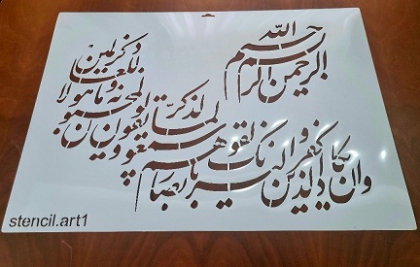 بسم الله الرحمن الرحیم
وان یکاد الذین کفروا لیزلقونک بابصارهم
لما سمعوا الذکر و یقولون انه لمجنون
و ما هو الا ذکر للعالمین
stencil.art1